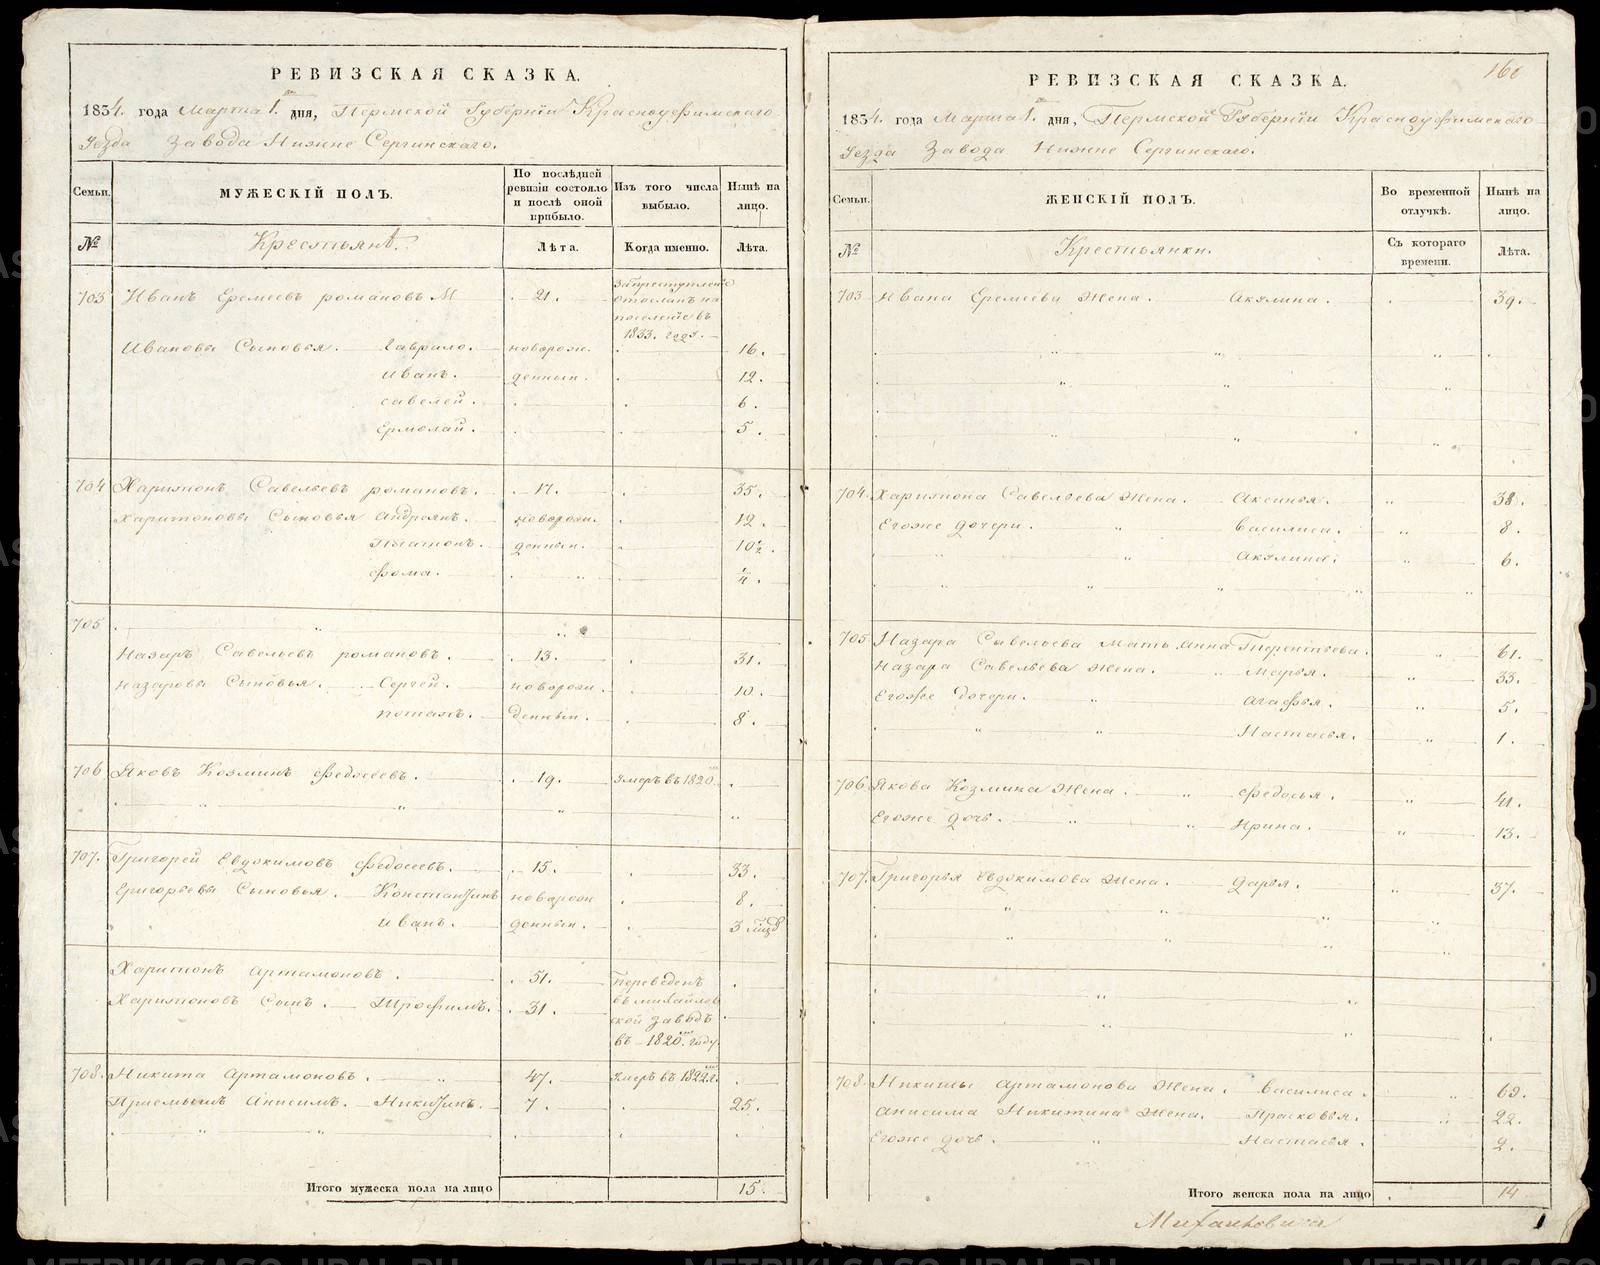 РЕВИЗСКАЯ СКАЗКА.
1834. года Марта 1. дня, Пермской Губернiи Красноуфимскаго
Уезда Завода Нижне Сергинскаго.
Семьи. МУЖЕСКIЙ ПОЛЪ. По послѣдней ревизiи состояло и послѣ оной прибыло. Изъ того числа выбыло. Нынѣ на лицо.
№ Крестьянѣ. Лѣта. Когда именно. Лѣта.
703 Иванъ Еремеевъ романовъ 21. За преступленiе отосланъ на поселенiе въ 1833. году.
Ивановы Сыновья. Гаврило. новорож. 16.
Иванъ. денныи. 12.
савелей. 6.
Ермолай. 5.
704 Харитонъ Савельевъ романовъ. 17. 35.
Харитоновы Сыновья Андреянъ. новорож. 12.
Платонъ. денныи. 10½.
Фома. ¼.
705
Назаръ Савельевъ романовъ. 13. 31.
Назаровы Сыновья. Сергей. новорож. 10.
потапъ. денныи. 8.
706 Яковъ Козминъ Федосеевъ. 19. Умеръ въ 1820.
707. Григорей Евдокимовъ Федосеевъ. 15. 33.
Григорьевы Сыновья. Константинъ новорож 8.
Иванъ. денныи. 3
Харитонъ Артамоновъ. 51. Переведенъ
Харитоновъ Сынъ. Трофимъ. 31. въ михайловской заводъ
въ 1820. году.
708. Никита Артамоновъ. 47. Умеръ въ 1822.
Прiемышъ Анисимъ. Никитинъ. 7. 25.
Итого мужеска пола на лицо 15.
160
РЕВИЗСКАЯ СКАЗКА.
1834. года Марта 1. дня, Пермской Губернiи Красноуфимскаго
Уезда Завода Нижне Сергинскаго.
Семьи. ЖЕНСКIЙ ПОЛЪ. Во временной отлучкѣ. Нынѣ на лицо.
№ Крестьянки. Съ котораго времени. Лѣта.
703. Ивана Еремеева жена. Акулина. 39.
704. Харитона Савельева жена. Аксинья. 38.
Егоже дочери. василиса. 8.
Акулина. 6.
705 Назара Савельева мать Анна Терентьева. 61.
Назара Савельева жена. марья. 33.
Егоже дочери. агафья. 5.
Настасья. 1.
706. Якова Козмина жена. федосья. 41.
Егоже дочь. Ирина. 13.
707. Григорья Евдокимова жена. дарья. 37.
708. Никиты Артамонова жена. василиса. 69.
анисима Никитина жена. Прасковья. 22.
Егоже дочь. Настасья. 2.
Итого женска пола на лицо 14
METRIKI.GASO-URAL.RU